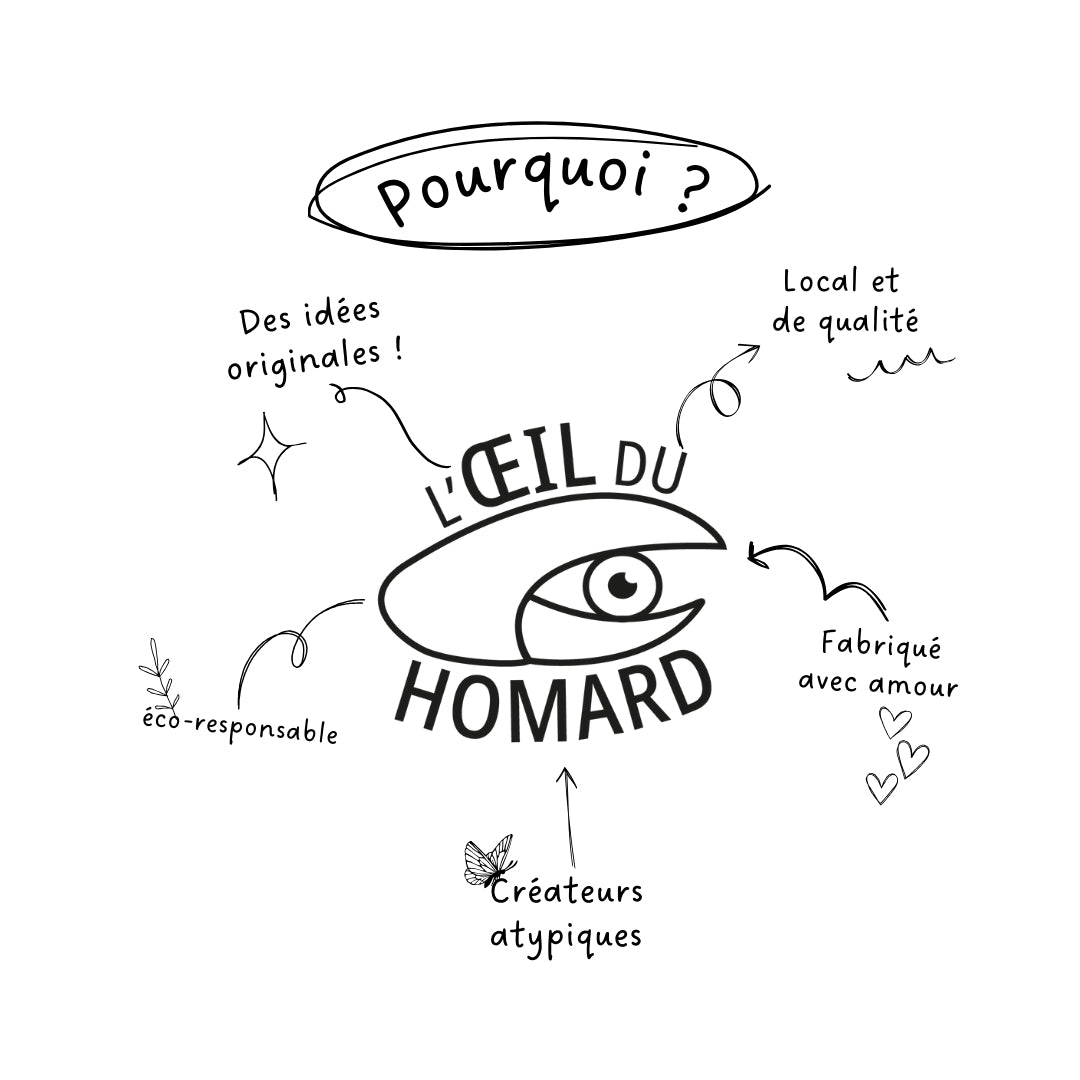 Pourquoi ?
Des idées
originales !
Local et
de qualité
L'ŒIL DU
HOMARD
Fabriqué
avec amour
éco-responsable
Créateurs
atypiques